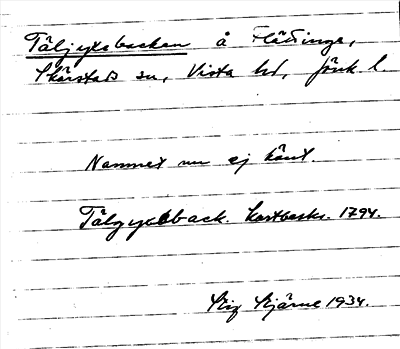 Täljyxebacken å Flättinge,
Skärstads sn, Vista hd, Jönk. l.
Namnet nu ej känt.
Tälgyxeback. Kartbeskr. 1794.
Stig Stjärne 1934.